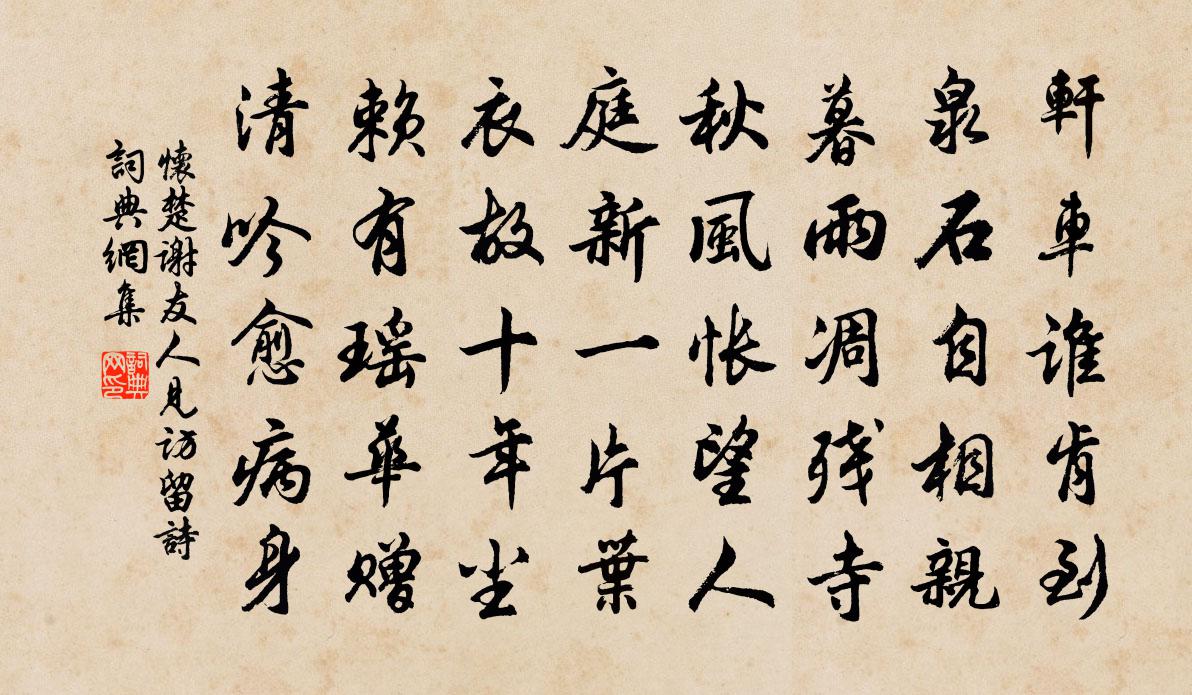 軒車誰肯到
泉石自相親
暮雨凋残寺
秋風悵望人
庭新一片葉
衣故十年尘
赖有瑶華赠
清吟愈病身
懷楚謝友人見访留詩
詞典網集
詞典网印